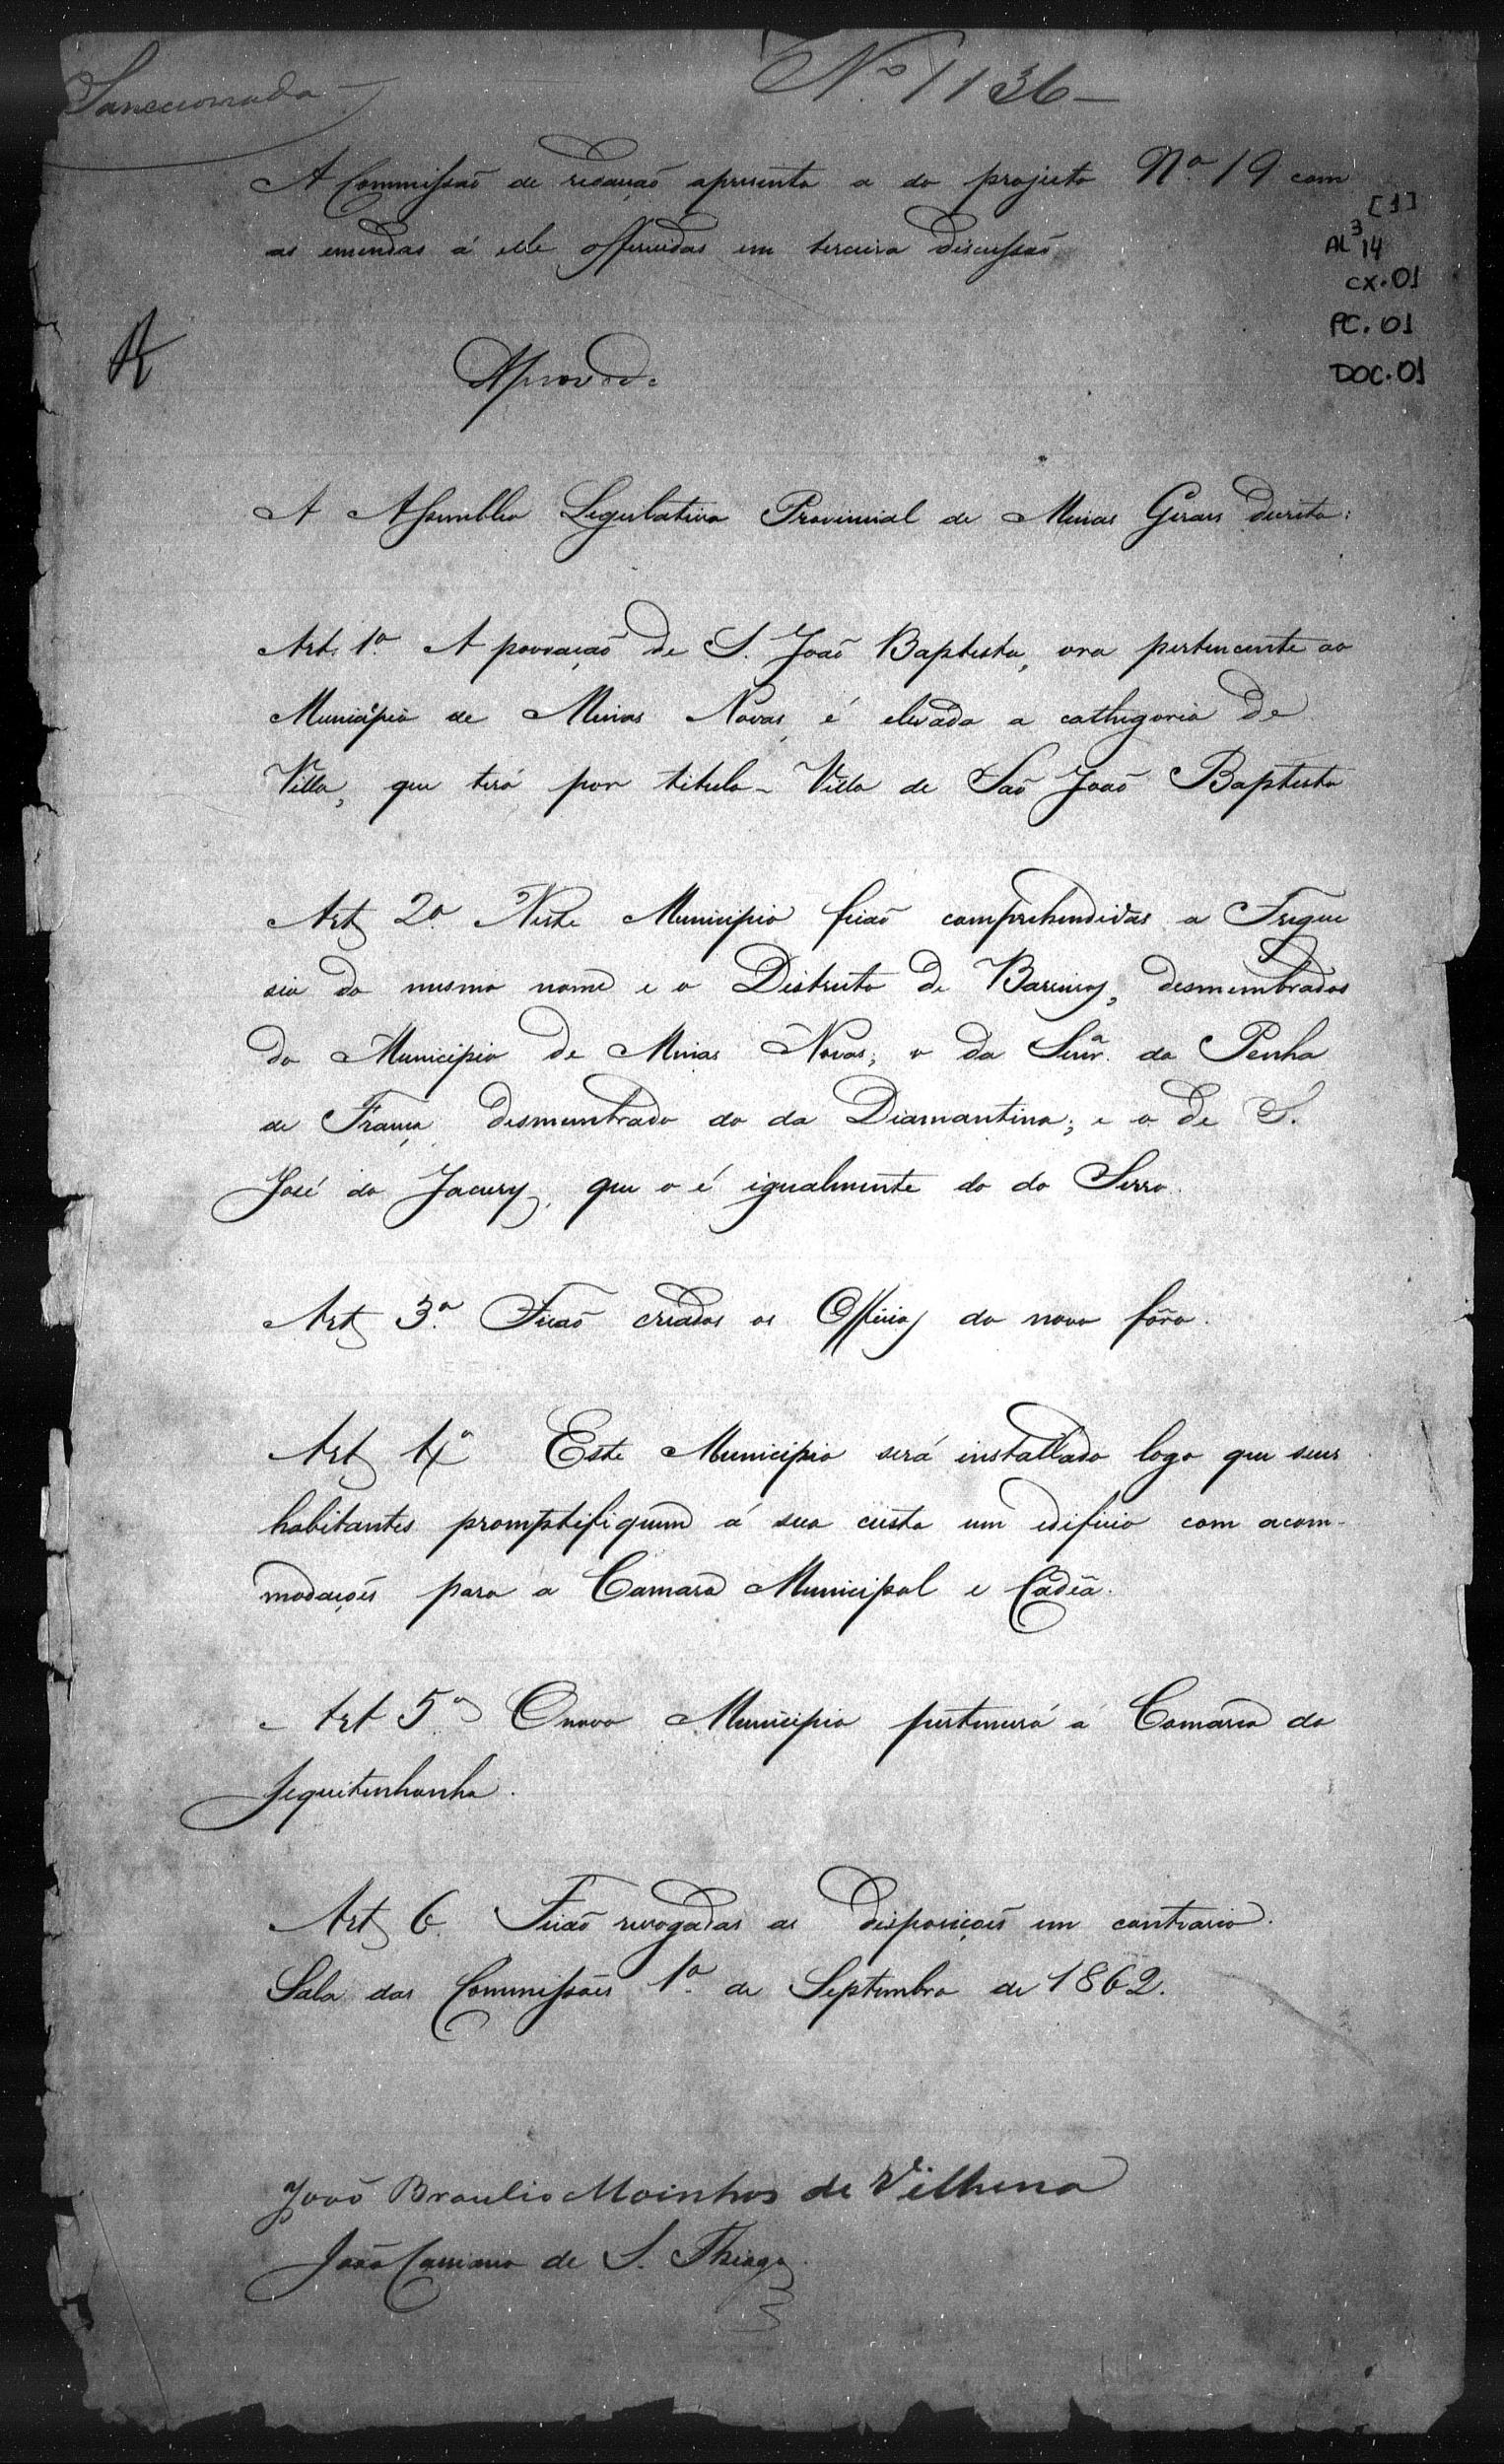 Sanccionada
Nº 1136
A Commissaõ de redacçaõ apresenta a do projecto Nº 19 com
[1]
as emendas á elle offerecidas em terceira discussaõ
AL³ 14
CX.01
PC.01
DOC.01
Aprovado
A Assemblea Legislativa Provincial de Minas Geraes Decreta:
Art. 1º A povoaçaõ de S. Joaõ Baptista, ora pertencente ao
Municipio de Minas Novas, é elevada a cathegoria de
Villa, que terá por titulo - Villa de Saõ Joaõ Baptista
Art 2º Neste Municipio ficaõ comprehendidas a Fregue
sia do mesmo nome e o Districto de Barreiras, desmembrados
do Municipio de Minas Novas; o da Senrª da Penha
de França desmembrado do da Diamantina; e o de S.
José do Jacury, que o é igualmente do do Serro.
Art 3º Ficaõ criados os Officios do novo fôro.
Art 4º Este Municipio será installado logo que seus
habitantes promptifiquem á sua custa um edificio com acom-
modações para a Camara Municipal e Cadêa.
Art 5º O novo Municipio pertencerá á Comarca do
Jequitinhonha.
Art 6 Ficaõ revogadas as disposiçoẽs em contrario.
Sala das Commissões 1º de Septembro de 1862.
Joaõ Braulio Moinhos de Vilhena
João Cassiano de S. Thiago.